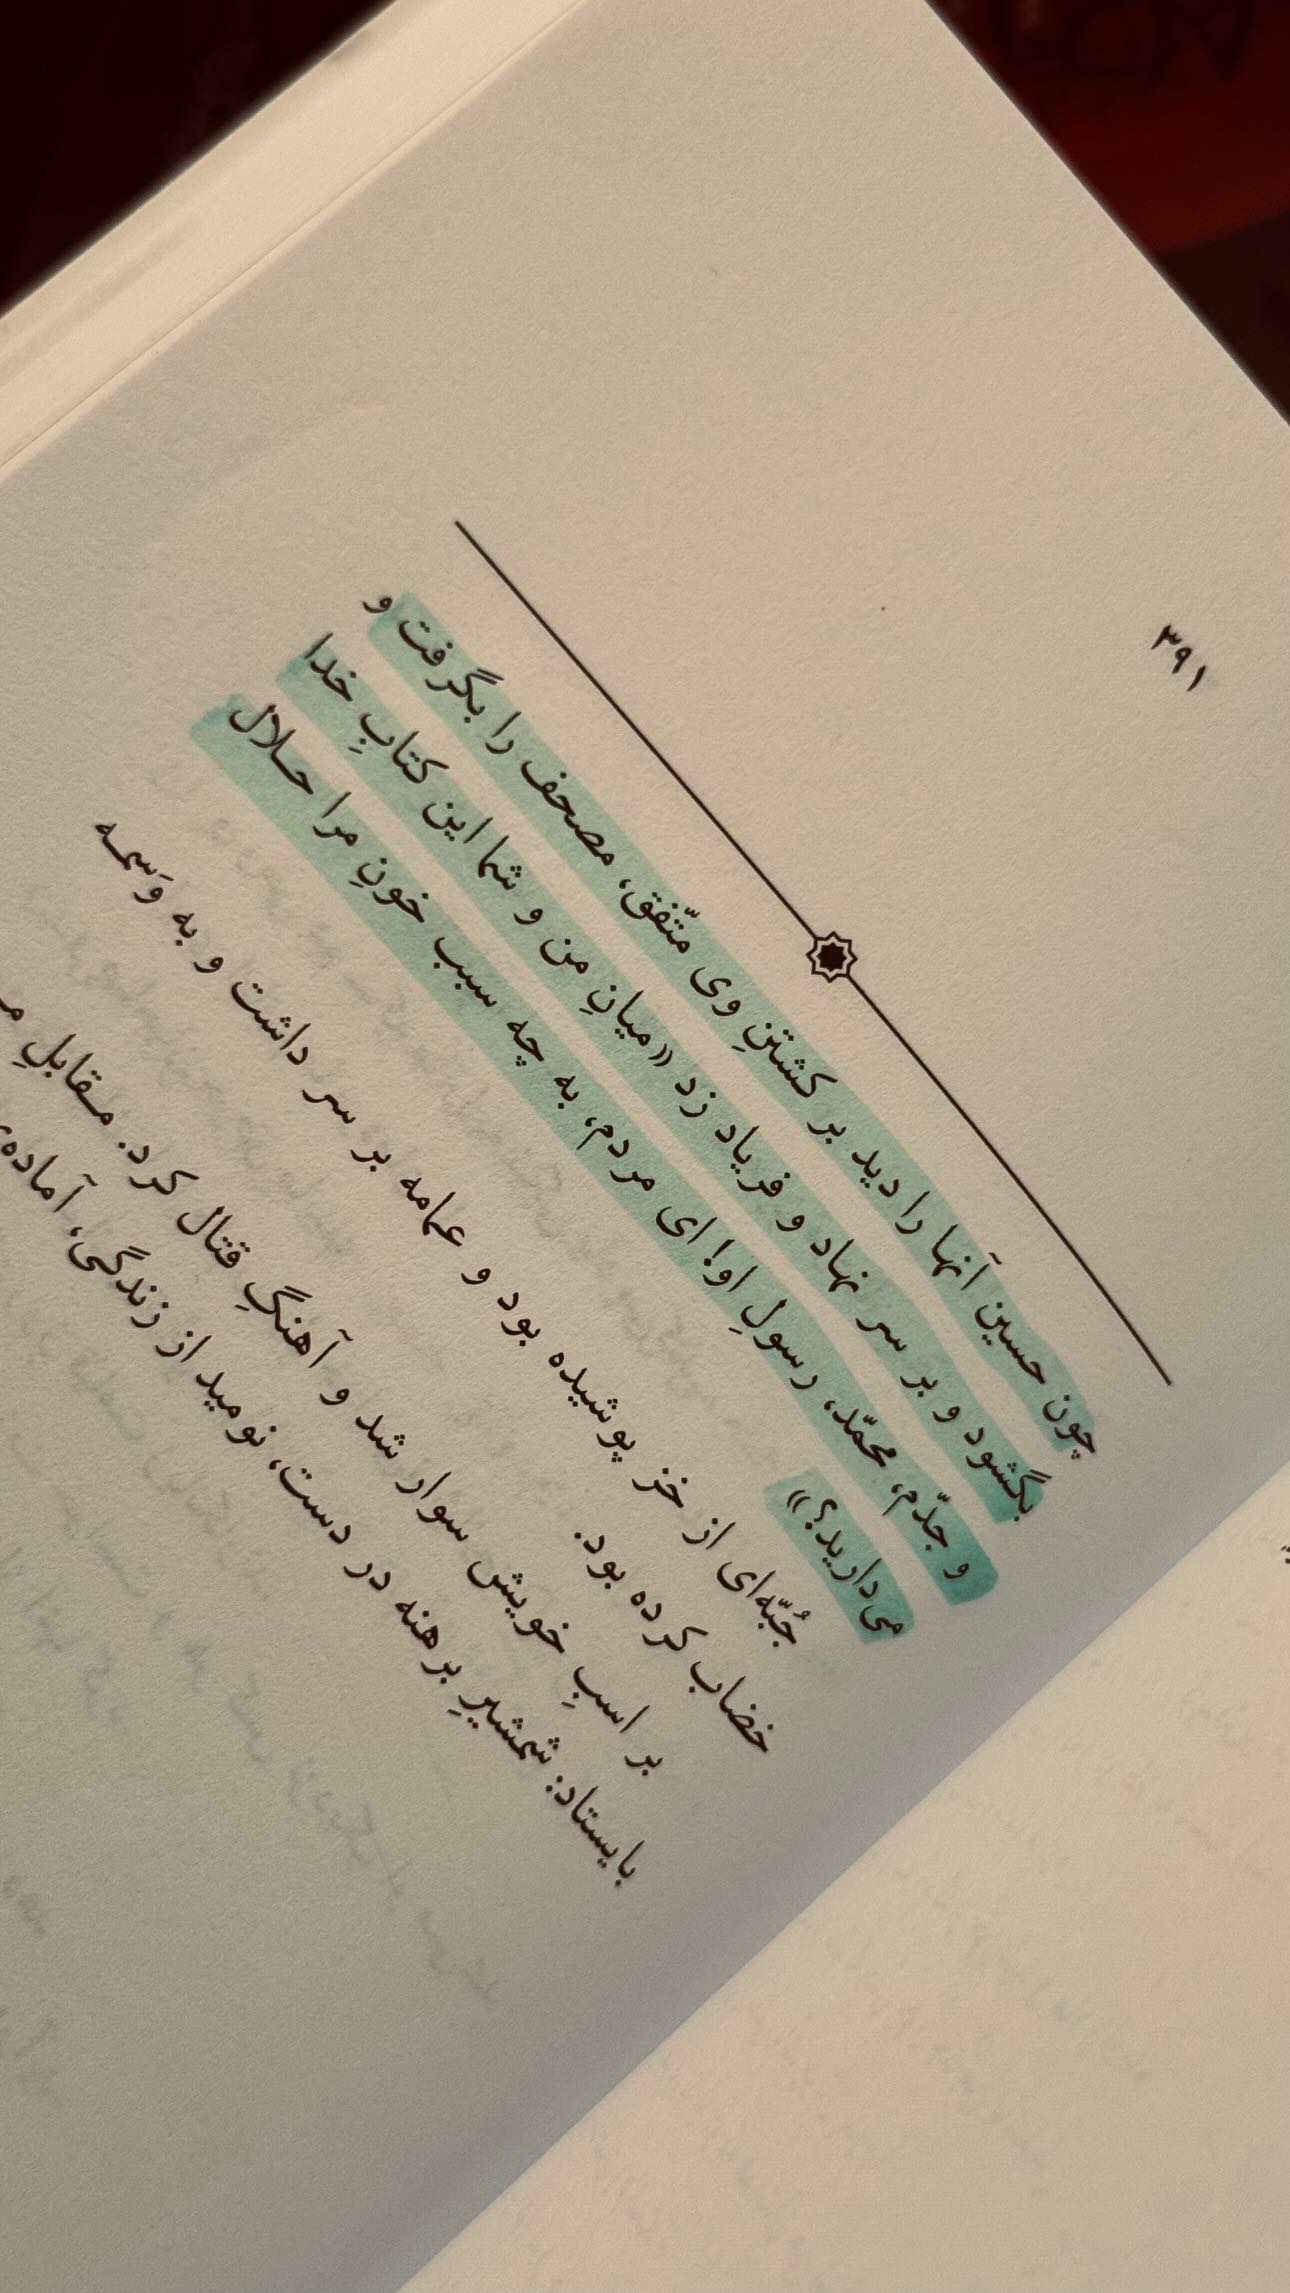 ۳۹۱
چون حسین آنها را دید بر کشتنِ وی متّفق، مصحف را بگرفت و
بگشود و بر سر نهاد و فریاد زد «میانِ من و شما این کتابِ خدا
و جدّم، محمّد، رسولِ او! ای مردم، به چه سبب خونِ مرا حلال
می‌دارید؟»
جُبّه‌ای از خز پوشیده بود و عمامه بر سر داشت و به وَسمه
خضاب کرده بود.
بر اسبِ خویش سوار شد و آهنگِ قتال کرد. مقابلِ
بایستاد: شمشیرِ برهنه در دست، نومید از زندگی، آماده‌ی